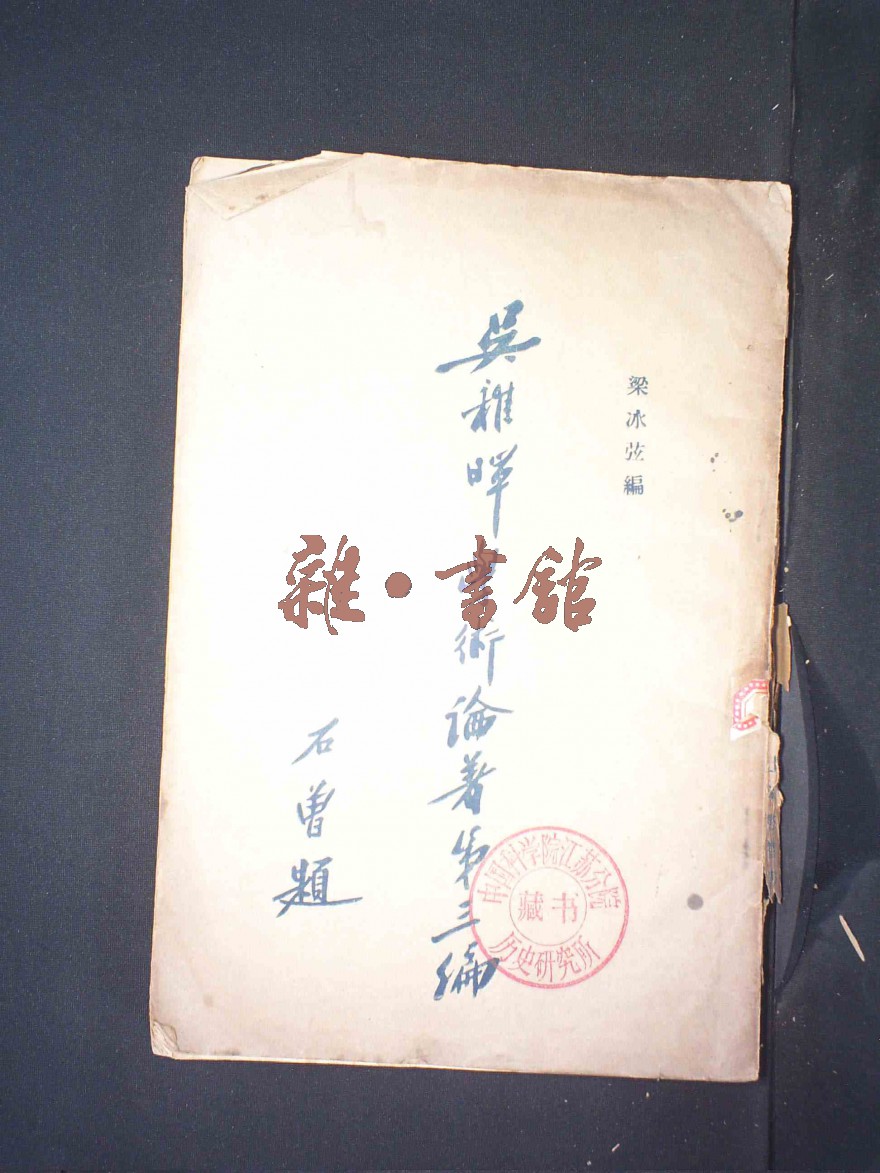 梁冰弦編
吳稚暉學術論著第三編
石曾題
雜·書館
中国科学院江苏分院
藏书
历史研究所